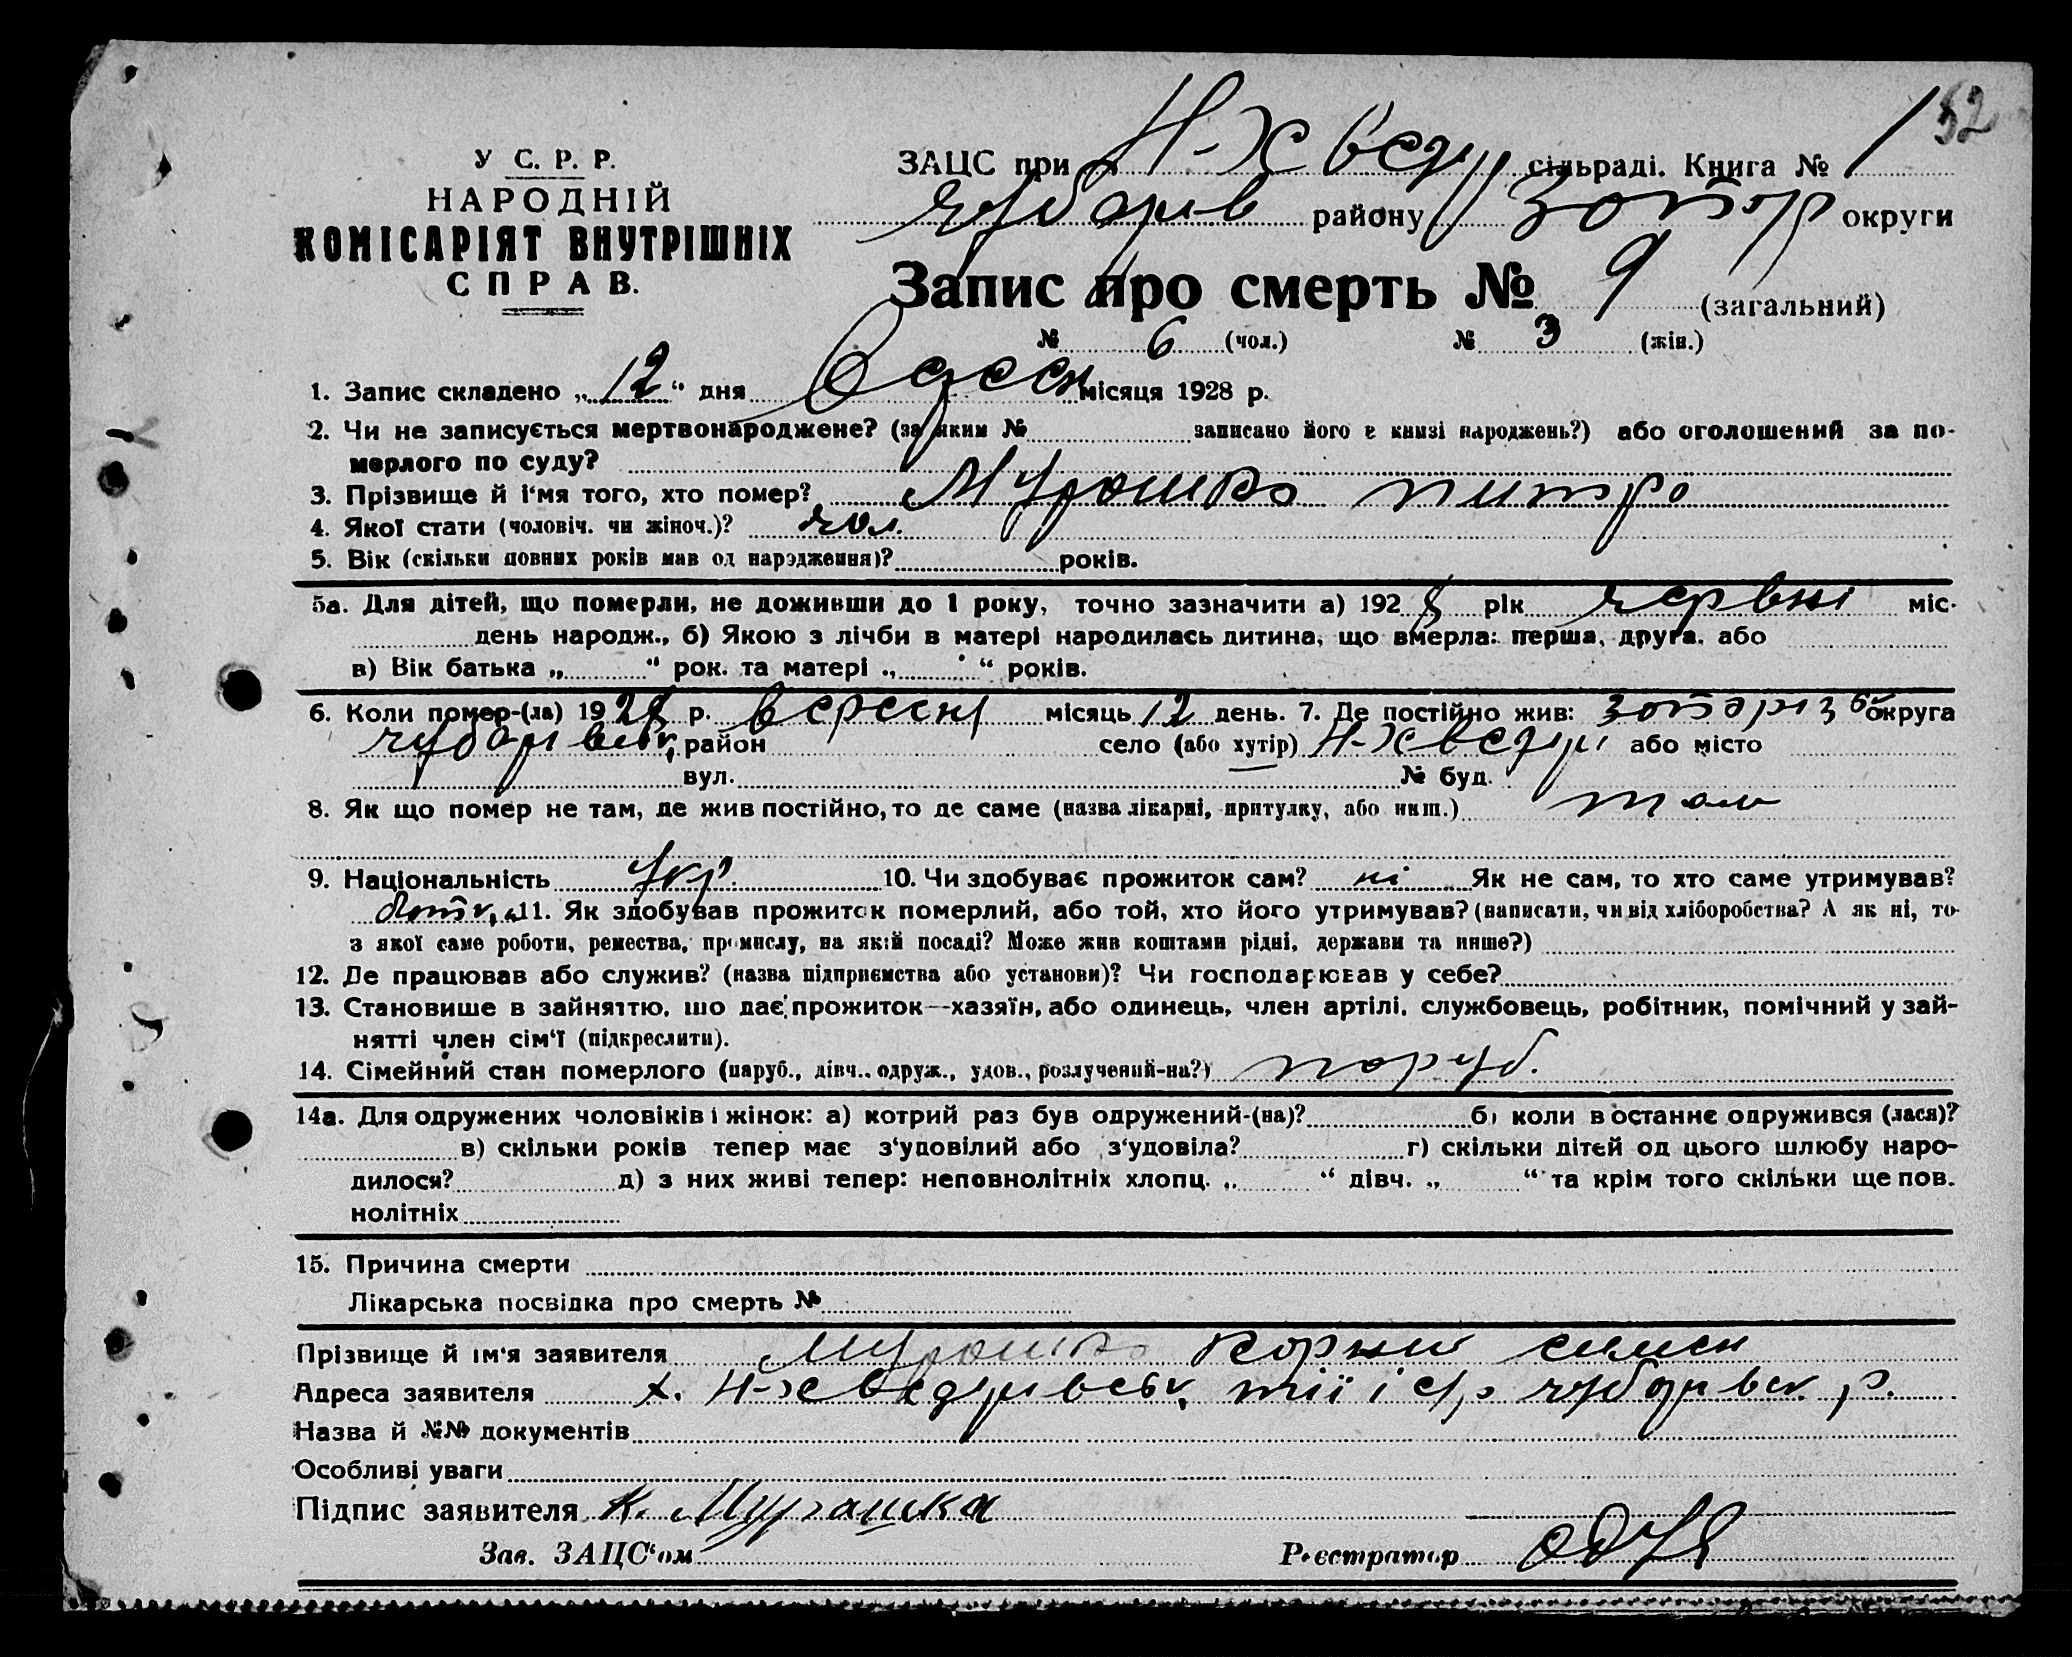 52
У С. Р. Р.
НАРОДНІЙ
КОМІСАРІЯТ ВНУТРІШНІХ
СПРАВ.
ЗАЦС при сільраді. Книга № 1
району округи
Запис про смерть № 9 (загальний)
№ 6 (чол.) № 3 (жін.)
1. Запис складено „12“ дня місяця 1928 р.
2. Чи не записується мертвонароджене? (за яким № записано його в книзі народжень?) або оголошений за по-
мерлого по суду?
3. Прізвище й і'мя того, хто помер? Мурашко Питро
4. Якої стати (чоловіч. чи жіноч.)? чол.
5. Вік (скільки повних років мав од народження)? років.
5а. Для дітей, що померли, не доживши до 1 року, точно зазначити а) 1928 рік червні міс.
день народж., б) Якою з лічби в матері народилась дитина, що вмерла: перша, друга, або
в) Вік батька „ “ рок. та матері „ “ років.
6. Коли помер-(ла) 1928 р. вересня місяць 12 день. 7. Де постійно жив: округа
район село (або хутір) або місто
вул. № буд.
8. Як що помер не там, де жив постійно, то де саме (назва лікарні, притулку, або инш.) там
9. Національність Укр. 10. Чи здобуває прожиток сам? ні Як не сам, то хто саме утримував?
11. Як здобував прожиток померлий, або той, хто його утримував? (написати, чи від хліборобства? А як ні, то-
з якої саме роботи, ремества, промислу, на якій посаді? Може жив коштами рідні, держави та инше?)
12. Де працював або служив? (назва підприємства або установи)? Чи господарював у себе?
13. Становище в зайняттю, що дає прожиток—хазяїн, або одинець, член артілі, службовець, робітник, помічний у зай-
нятті член сім'ї (підкреслити).
14. Сімейний стан померлого (паруб., дівч., одруж., удов., розлучений-на?) паруб.
14а. Для одружених чоловіків і жінок: а) котрий раз був одружений-(на)? б) коли в останнє одружився (лася)?
в) скільки років тепер має з'удовілий або з'удовіла? г) скільки дітей од цього шлюбу наро-
дилося? д) з них живі тепер: неповнолітніх хлопц. „ “ дівч. „ “ та крім того скільки ще пов.
нолітніх
15. Причина смерти
Лікарська посвідка про смерть №
Прізвище й ім'я заявителя Мурашко Корний
Адреса заявителя х. р.
Назва й №№ документів
Особливі уваги
Підпис заявителя К. Мурашка
Зав. ЗАЦС'ом Реєстратор